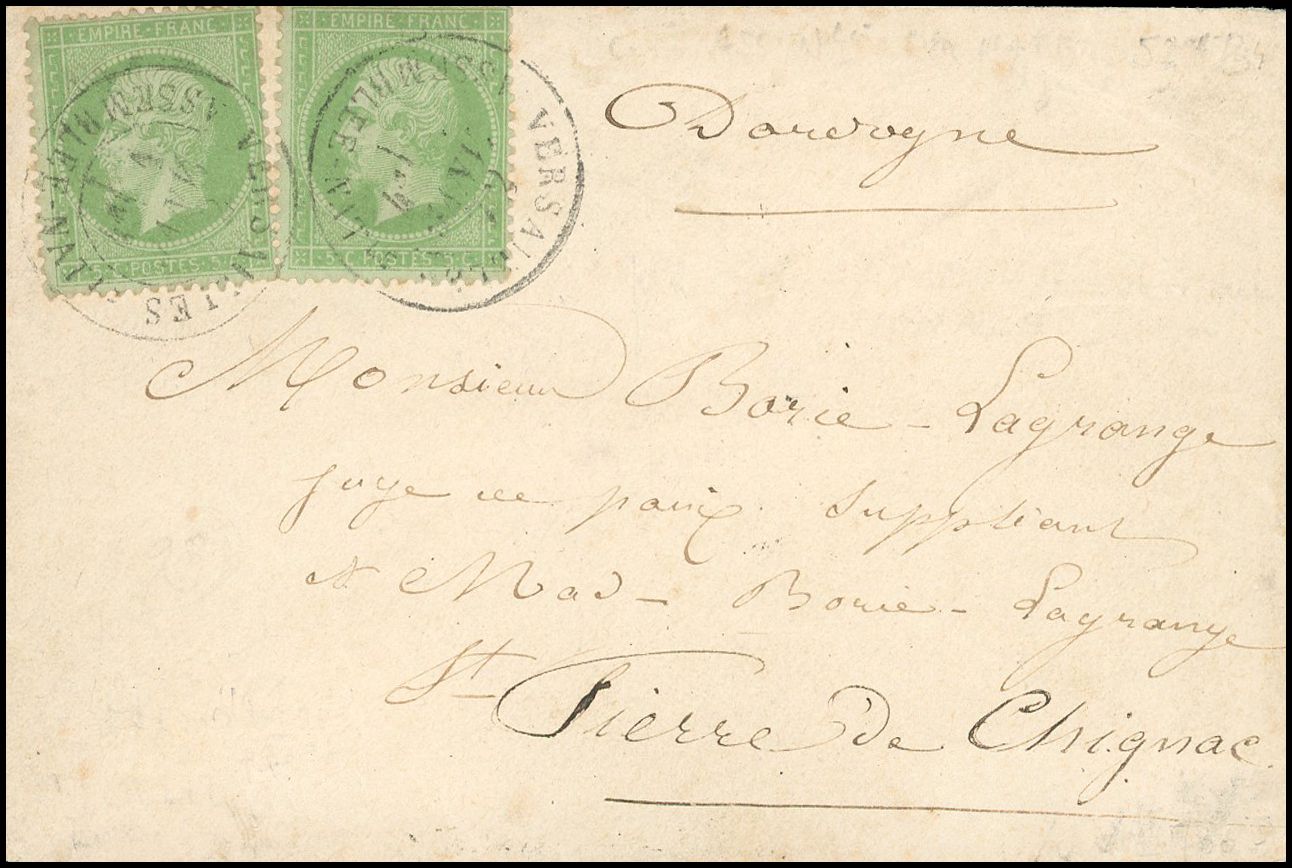 EMPIRE FRANC
EMPIRE FRANC
5 C. POSTES 5 C.
5 C. POSTES 5 C.
VERSAILLES
ASSEMBLEE
VERSAILLES
ASSEMBLEE
Dordogne
Monsieur Borie-Lagrange
juge de paix suppléant
& Mad- Borie-Lagrange
St Pierre de Chignac